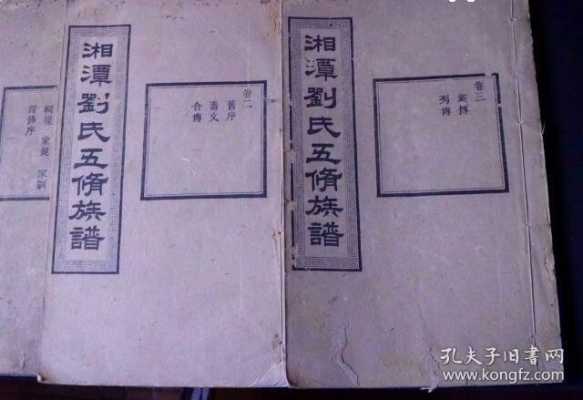 卷三
列傳
湘潭劉氏五脩族譜
卷二
舊序
壽文
合傳
湘潭劉氏五脩族譜
家規 家訓
孔夫子旧书网